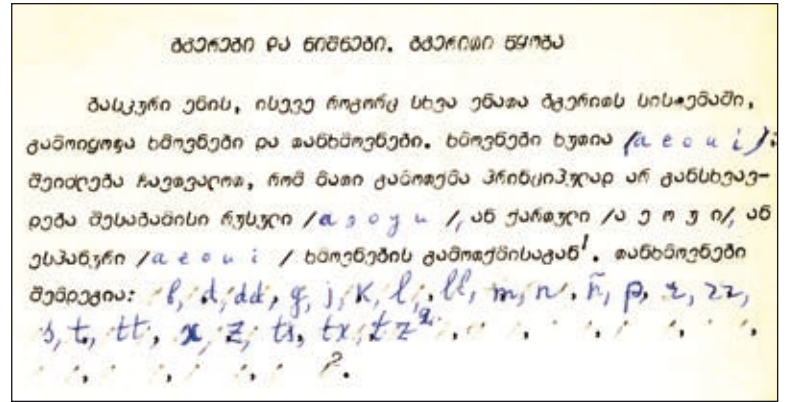 ბგერები და ნიშნები. ბგერითი წყობა
ბასკური ენის, ისევე როგორც სხვა ენათა ბგერით სისტემაში,
გამოიყოფა ხმოვნები და თანხმოვნები. ხმოვნები ხუთია /a e o u i/;
შეიძლება ჩავთვალოთ, რომ მათი გამოთქმა პრინციპულად არ განსხვავ-
დება შესაბამისი რუსული /а э о у и/, ან ქართული /ა ე ო უ ი/, ან
ესპანური /a e o u i/ ხმოვნების გამოთქმისაგან¹. თანხმოვნები
შემდეგია: b, d, dd, g, j, k, l, ll, m, n, ñ, p, r, rr,
s, t, tt, x, z, ts, tx, tz².
2.